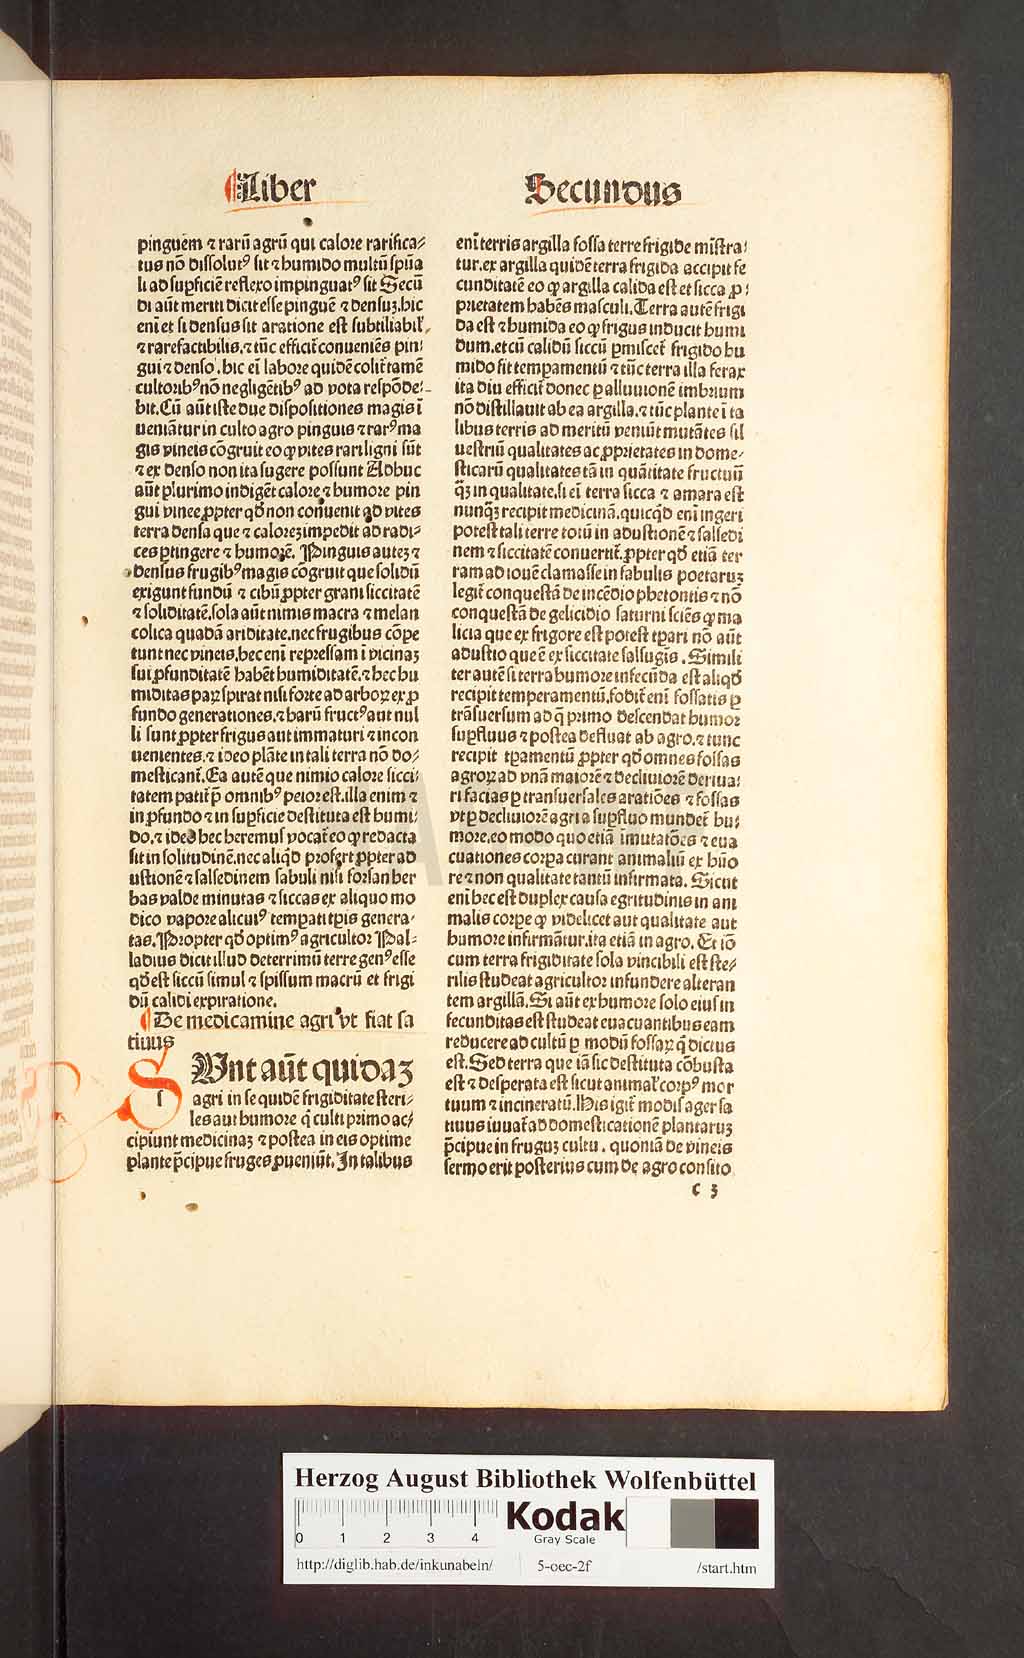 Liber Secundus
pinguem ⁊ rarū agrū qui calore rarifica⸗
tus nō dissolutꝰ sit ⁊ humido multū spūa
li ad supficiē reflexo impinguatꝰ sit Secū
di aūt meriti dicit esse pinguē ⁊ densuꝫ.hic
enī et si densus sit aratione est subtiliabil'
⁊ rarefactibilis.⁊ tūc efficit̄ conueniēs pin⸗
gui ⁊ denso.hic eī labore quidē colit̄ tamē
cultoribꝰ nō negligētibꝰ ad vota respōde⸗
bit.Cū aūt iste due dispositiones magis ī
ueniāturin culto agro pinguis ⁊ rarꝰ ma
gis vineis cōgruit eo ꝙ vites rari ligni sūt
⁊ ex denso non ita sugere possunt Adhuc
aūt plurimo indigēt calore ⁊ humore pin
gui vinee ꝓpter qd̄ non conuenit ad vites
terra densa que ⁊ caloreꝫ impedit ad radi⸗
ces ꝑtingere ⁊ humorē. Pinguis auteꝫ ⁊
densus frugibꝰ magis cōgruit que solidū
exigunt fundū ⁊ cibū ꝓpter grani siccitatē
⁊ soliditatē.sola aūt nimis macra ⁊ melan
colica quadā ariditate.nec frugibus cōpe
tunt nec vineis.hec enī repressam ī vicinaꝫ
sui ꝓfunditatē habēt humiditatē.⁊ hec hu
miditas paꝝ spirat nisi forte ad arboꝝ ex ꝓ
fundo generationes.⁊ harū fructꝰ aut nul
li sunt ꝓpter frigus aut immaturi ⁊ incon
uenientes.⁊ ideo plāte in tali terra nō do⸗
mesticant̄.Ea autē que nimio calore sicci⸗
tatem patit̄ p̄ omnibꝰ peior est.illa enim ⁊
in ꝓfundo ⁊ in supficie destituta est humi⸗
do.⁊ ideo hec heremus vocat̄ eo ꝙ redacta
sit in solitudinē.nec aliqd̄ profert ꝓpter ad
ustionē ⁊ salsedinem sabuli nisi forsan her
bas valde minutas ⁊ siccas ex aliquo mo
dico vapore alicuiꝰ tempati tp̄is genera⸗
tas.Propter qd̄ optimꝰ agricultor Pal⸗
ladius dicit illud deterrimū terre genꝰ esse
qd̄ est siccū simul ⁊ spissum macrū et frigi
dū calidi expiratione.
De medicamine agri vt fiat sa
tiuus
SUnt aūt quidaꝫ
agri in se quidē frigiditate steri⸗
les aut humore q̄ culti primo ac⸗
cipiunt medicinaꝫ ⁊ postea in eis optime
plante p̄cipue fruges ꝓueniūt.In talibus
enī terris argilla fossa terre frigide mīstra⸗
tur.ex argilla quidē terra frigida accipit fe
cunditatē eo ꝙ argilla calida est et sicca ꝓ⸗
prietatem habēs masculi.Terra autē frigi
da est ⁊ humida eo ꝙ frigus inducit humi
dum.et cū calidū siccū ꝑmiscet̄ frigido hu
mido fit tempamentū ⁊ tūc terra illa ferax
ita diu efficit̄ donec ꝑ alluuionē imbrium
nō distillauit ab ea argilla.⁊ tūc plante ī ta
libus terris ad meritū veniūt mutātes sil
uestriū qualitates ac ꝓprietates in dome⸗
sticarū qualitates tā in quātitate fructuū
q̄ꝫ in qualitate.si eī terra sicca ⁊ amara est
nunq̄ꝫ recipit medicinā.quicqd̄ enī ingeri
potest tali terre totū in adustionē ⁊ salsedi
nem ⁊ siccitatē conuertit̄.ꝓpter qd̄ etiā ter
ram ad iouē clamasse in fabulis poetaruꝫ
legit̄ conquestā de incēdio phetontis ⁊ nō
conquestā de gelicidio saturni sciēs ꝙ ma
licia que ex frigore est potest tꝑari nō aūt
adustio que ē ex siccitate salsugīs.Simili
ter autē si terra humore infecūda est aliqd̄
recipit temperamentū.fodit̄ enī fossatis ꝑ
trāsuersum ad q̄ primo descendat humor
supfluus ⁊ postea defluat ab agro.⁊ tunc
recipit tꝑamentū ꝓpter qd̄ omnes fossas
agroꝝ ad vnā maiorē ⁊ decliuiorē deriua⸗
ri facias ꝑ transuersales aratiōes ⁊ fossas
vt ꝑ decliuiorē agri a supfluo mundet̄ hu⸗
more.eo modo quo etiā īmutatōes ⁊ eua
cuationes corpa curant animaliū ex hūo
re ⁊ non qualitate tantū infirmata.Sicut
enī hec est duplex causa egritudinis in ani
malis corpe ꝙ videlicet aut qualitate aut
humore infirmātur.ita etiā in agro. Et iō
cum terra frigiditate sola vincibili est ste⸗
rilis studeat agricultor infundere alteran
tem argillā.Si aūt ex humore solo eius in
fecunditas est studeat euacuantibus eam
reducere ad cultū ꝑ modū fossaꝝ q̄ dictus
est.Sed terra que iā sic destituta cōbusta
est ⁊ desperata est sicut animal' corpꝰ mor
tuum ⁊ incineratū.His igit̄ modis ager sa
tiuus iuuat̄ ad domesticationē plantaruꝫ
p̄cipue in fruguꝫ cultu. quoniā de vineis
sermo erit posterius cum de agro consito
c 3
Herzog August Bibliothek Wolfenbüttel
0 1 2 3 4
Kodak
Gray Scale
http://diglib.hab.de/inkunabeln/ 5-oec-2f /start.htm